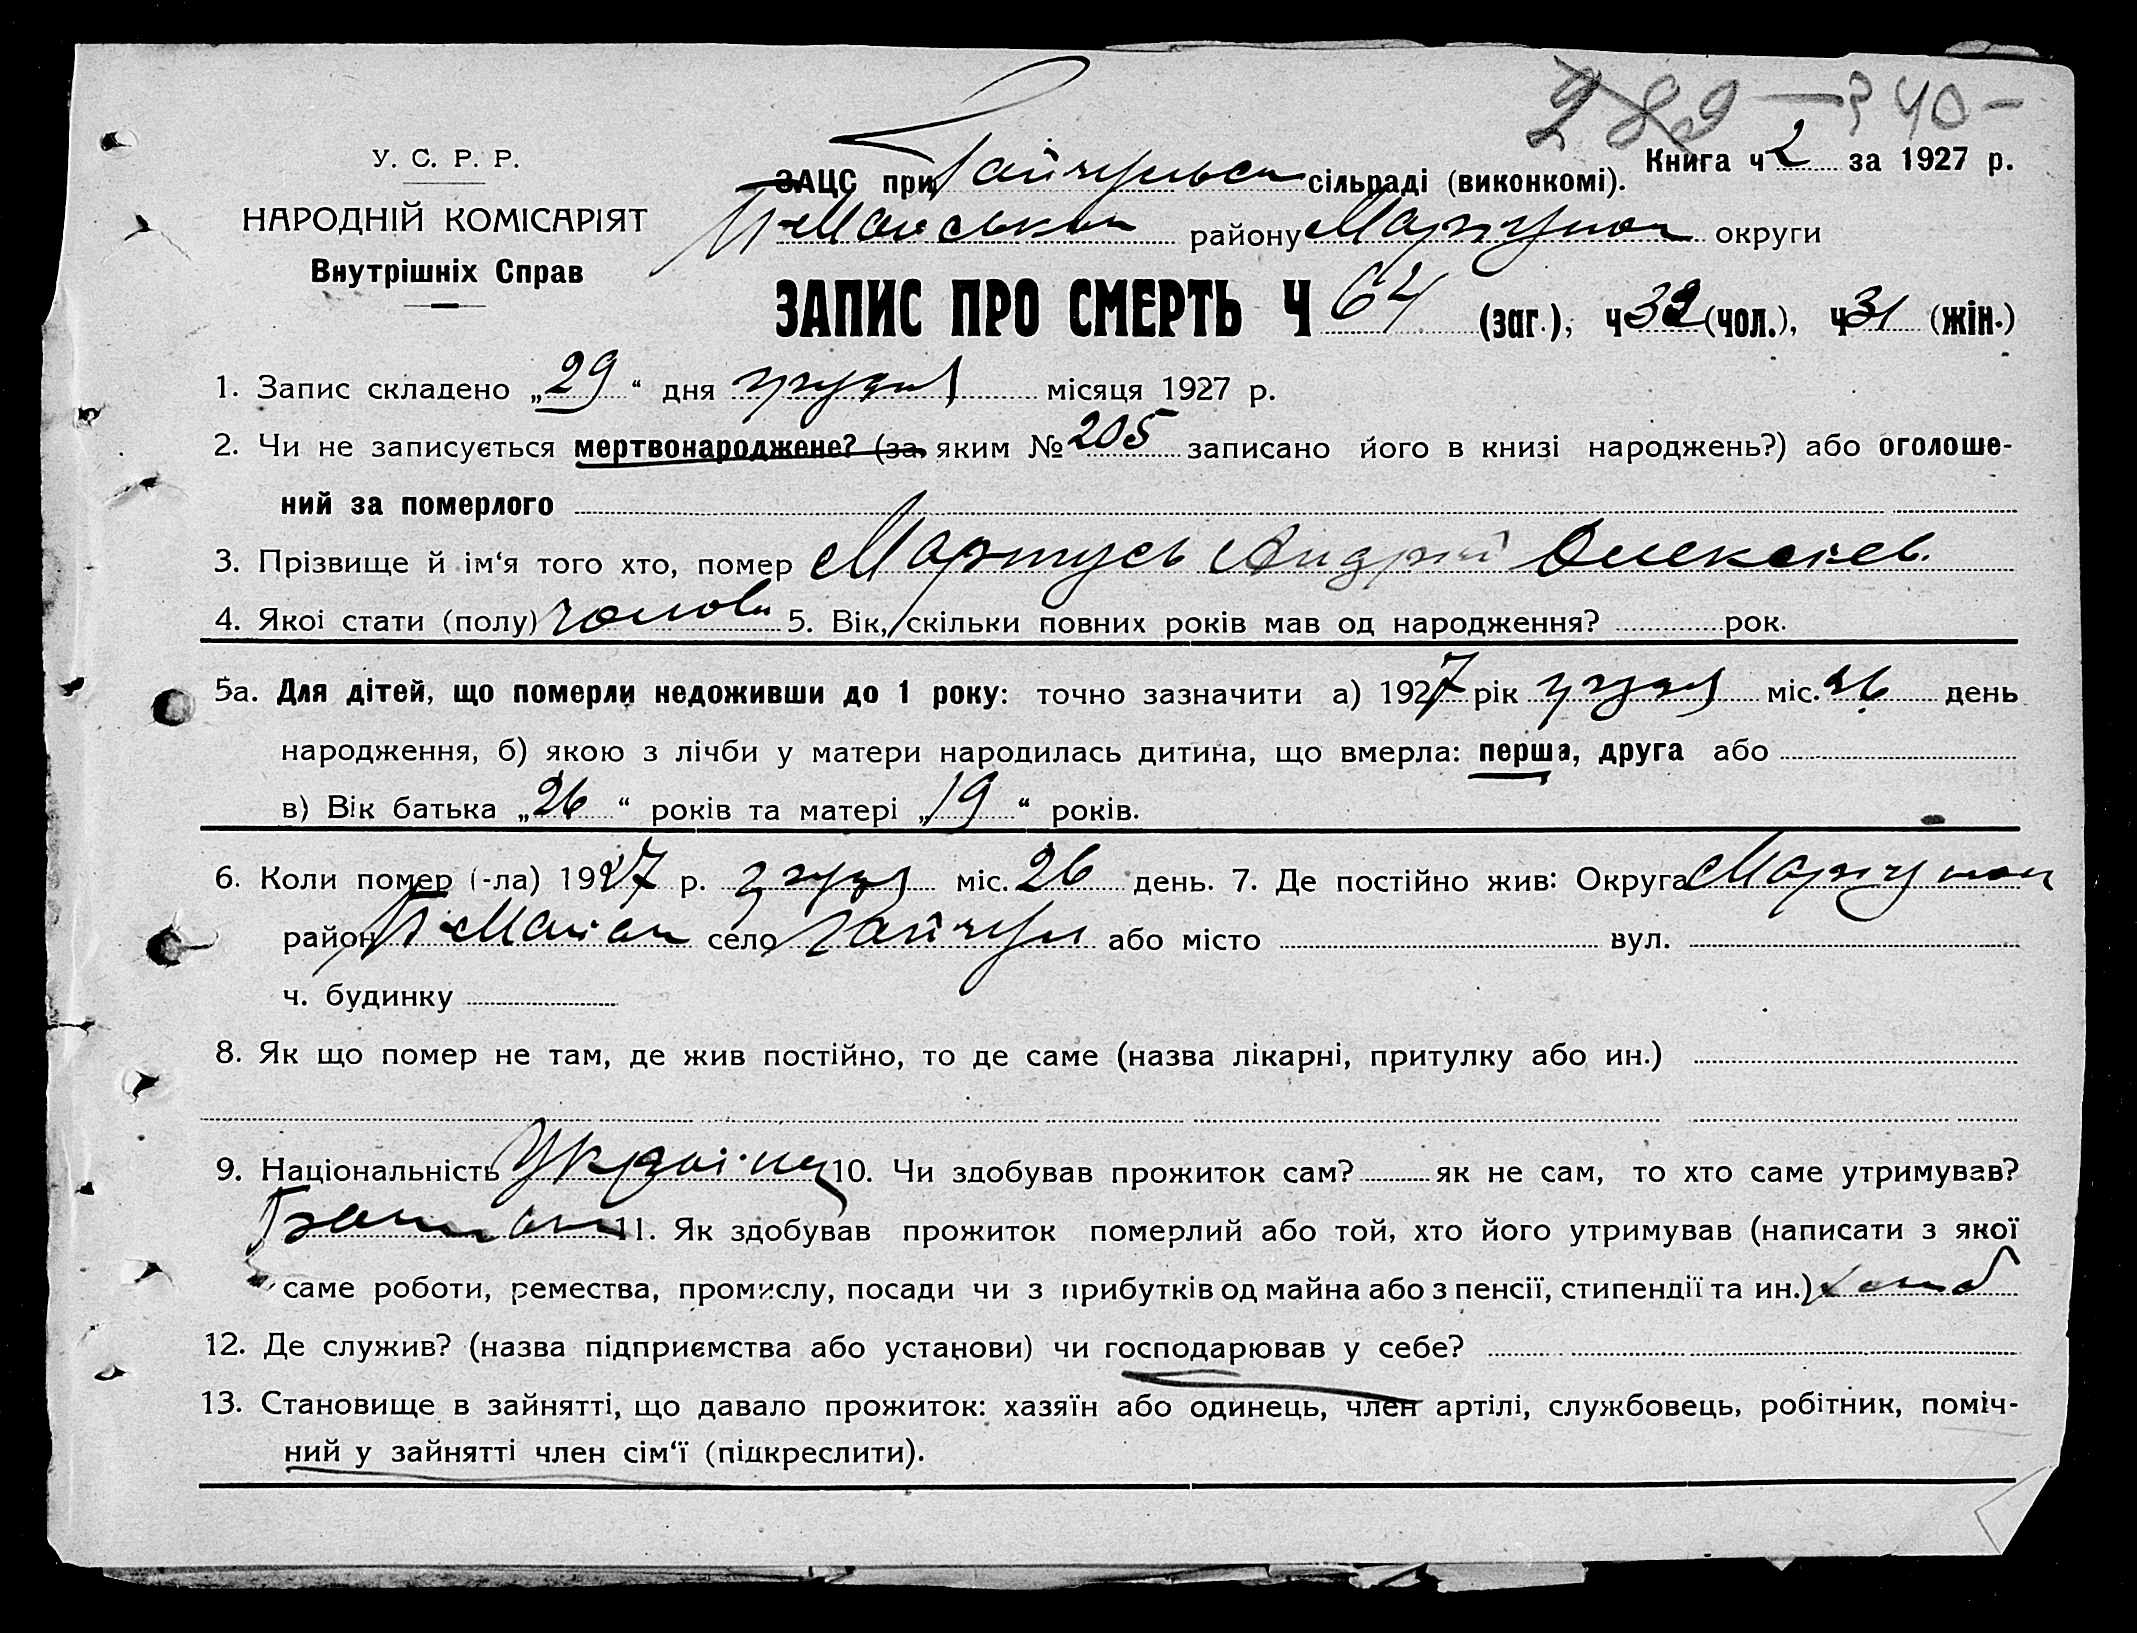 289 — 340 —
У. С. Р. Р.
НАРОДНІЙ КОМІСАРІЯТ
Внутрішніх Справ
Книга ч 2 за 1927 р.
ЗАЦС при Гайчульск сільраді (виконкомі).
району округи
ЗАПИС ПРО СМЕРТЬ Ч 64 (заг.), ч 32 (чол.), ч 31 (жін.)
1. Запис складено „29“ дня грудня місяця 1927 р.
2. Чи не записується мертвонароджене? (за яким № 205 записано його в книзі народжень?) або оголоше-
ний за померлого
3. Прізвище й ім‘я того хто, помер Мартусь Андрій Олексієв.
4. Якої стати (полу) чолов 5. Вік, скільки повних років мав од народження? рок.
5а. Для дітей, що померли недоживши до 1 року: точно зазначити а) 1927 рік грудня міс. 26 день
народження, б) якою з лічби у матери народилась дитина, що вмерла: перша, друга або
в) Вік батька „26“ років та матері „19“ років.
6. Коли помер (-ла) 1927 р. грудня міс. 26 день. 7. Де постійно жив: Округа
район село Гайчул або місто вул.
ч. будинку
8. Як що помер не там, де жив постійно, то де саме (назва лікарні, притулку або ин.)
9. Національність Україно 10. Чи здобував прожиток сам? як не сам, то хто саме утримував?
Батьки 11. Як здобував прожиток померлий або той, хто його утримував (написати з якої
саме роботи, ремества, промислу, посади чи з прибутків од майна або з пенсії, стипендії та ин.) хліб
12. Де служив? (назва підприємства або установи) чи господарював у себе?
13. Становище в зайнятті, що давало прожиток: хазяїн або одинець, член артілі, службовець, робітник, поміч-
ний у зайнятті член сім‘ї (підкреслити).